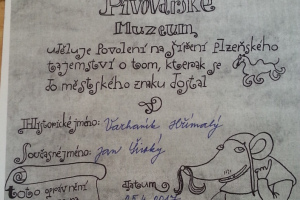 Pivovarské
Muzeum
uděluje Povolení na šíření Plzeňského
tajemství o tom, kterak se
do městského znaku dostal
Historické jméno: Varhaník Hřímalý
Současné jméno: Jan
@
toto oprávnění
datum